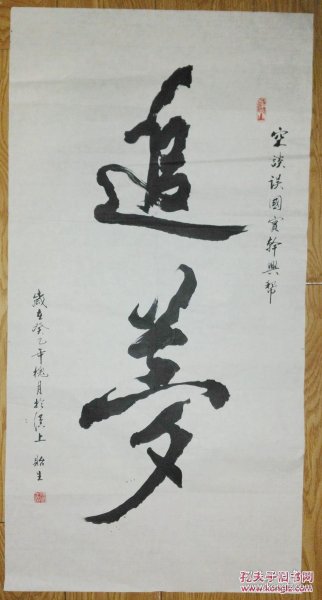 空談誤國實幹興邦
追夢
歲在癸巳年槐月於漢上 貽生
孔夫子旧书网